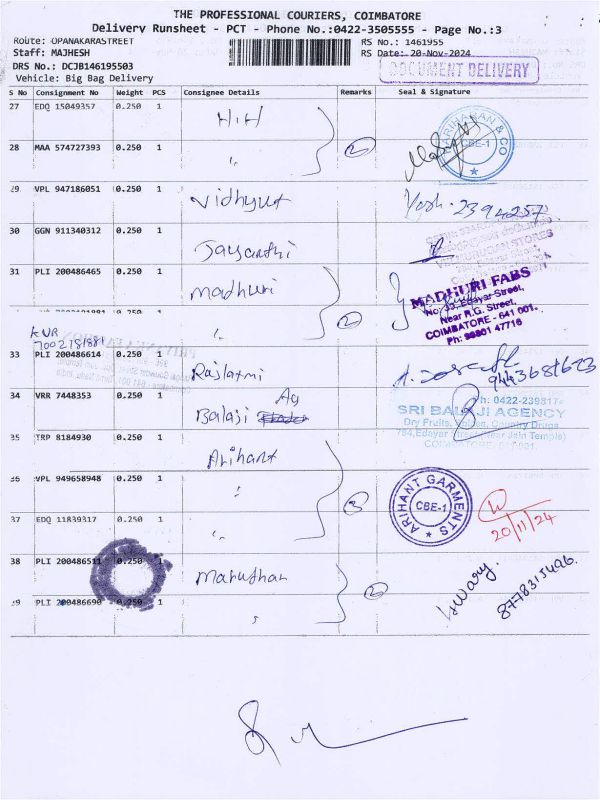 THE PROFESSIONAL COURIERS, COIMBATORE
Delivery Runsheet - PCT - Phone No.:0422-3505555 - Page No.:3
Route: OPANAKARASTREET RS No.: 1461955
Staff: MAJHESH RS Date: 20-Nov-2024
DRS No.: DCJB146195503 DOCUMENT DELIVERY
Vehicle: Big Bag Delivery
S No Consignment No Weight PCS Consignee Details Remarks Seal & Signature
27 EDQ 15049357 0.250 1 H.H
28 MAA 574727393 0.250 1 " 2
HARIHARAN & CO
CBE-1
29 VPL 947186051 0.250 1 Vidhyut Yosh. 2394257.
30 GGN 911340312 0.250 1 Jaysanthi
31 PLI 200486465 0.250 1 Madhuri
" 2
MADHURI FABS
No: 33, Edayar Street,
Near R.G. Street,
COIMBATORE - 641 001.
Ph: 98801 47716
KUR
7002181981
33 PLI 200486614 0.250 1 Rajlaxmi 9443681623
34 VRR 7448353 0.250 1 Balaji Ag
Ph: 0422-239817
SRI BALAJI AGENCY
Dry Fruits, Spices, Country Drugs
784, Edayar Street (Near Jain Temple)
COIMBATORE - 641 001.
35 TRP 8184930 0.250 1 Arihant
36 VPL 949658948 0.250 1 " 3
37 EDQ 11839317 0.250 1 "
ARIHANT GARMENTS
CBE-1
20/11/24
38 PLI 200486511 0.250 1 Marudhar 2
39 PLI 200486690 0.250 1 "
8778315496.